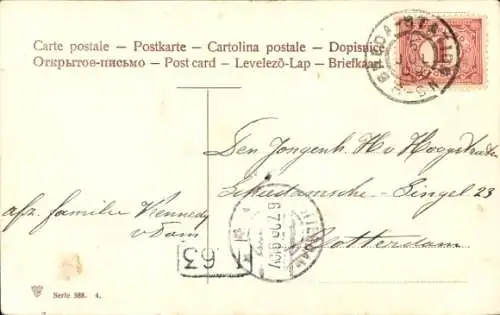 Carte postale – Postkarte – Cartolina postale – Dopisnice
Открытое-письмо – Post card – Levelező-Lap – Briefkaart
BREDA-STATION
Den Jongenh. H. v Hoogstraten
Schiedamsche-Singel 23
Rotterdam
afz. familie Kennedy
v Dam
ROTTERDAM
1.63
Serie 588. 4.